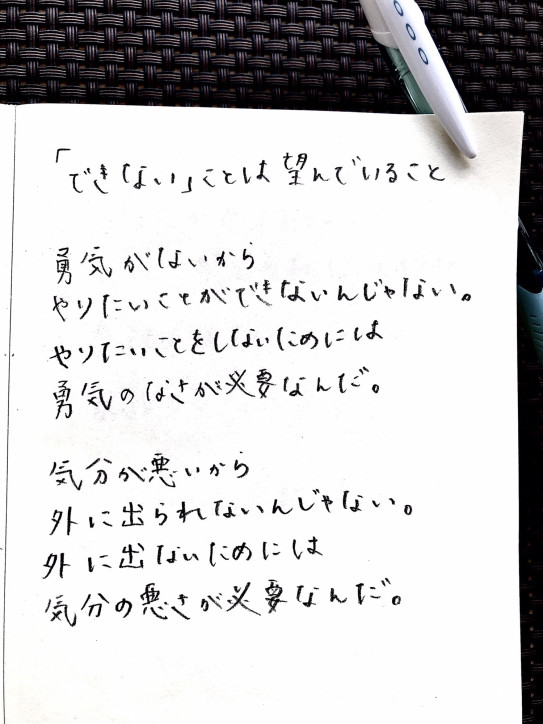 「できない」ことは望んでいること
勇気がないから
やりたいことができないんじゃない。
やりたいことをしないためには
勇気のなさが必要なんだ。
気分が悪いから
外に出られないんじゃない。
外に出ないためには
気分の悪さが必要なんだ。